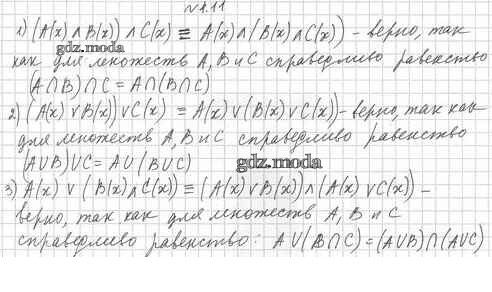 №1.11
1) (A(x) ∧ B(x)) ∧ C(x) ≡ A(x) ∧ (B(x) ∧ C(x)) – верно, так
gdz.moda
как для множеств A, B и C справедливо равенство
(A∩B)∩C = A∩(B∩C)
2) (A(x) ∨ B(x)) ∨ C(x) ≡ A(x) ∨ (B(x) ∨ C(x)) – верно, так как
для множеств A, B и C справедливо равенство
(A∪B)∪C = A∪(B∪C)
gdz.moda
3) A(x) ∨ (B(x) ∧ C(x)) ≡ (A(x) ∨ B(x)) ∧ (A(x) ∨ C(x)) –
верно, так как для множеств A, B и C
справедливо равенство: A∪(B∩C) = (A∪B)∩(A∪C)